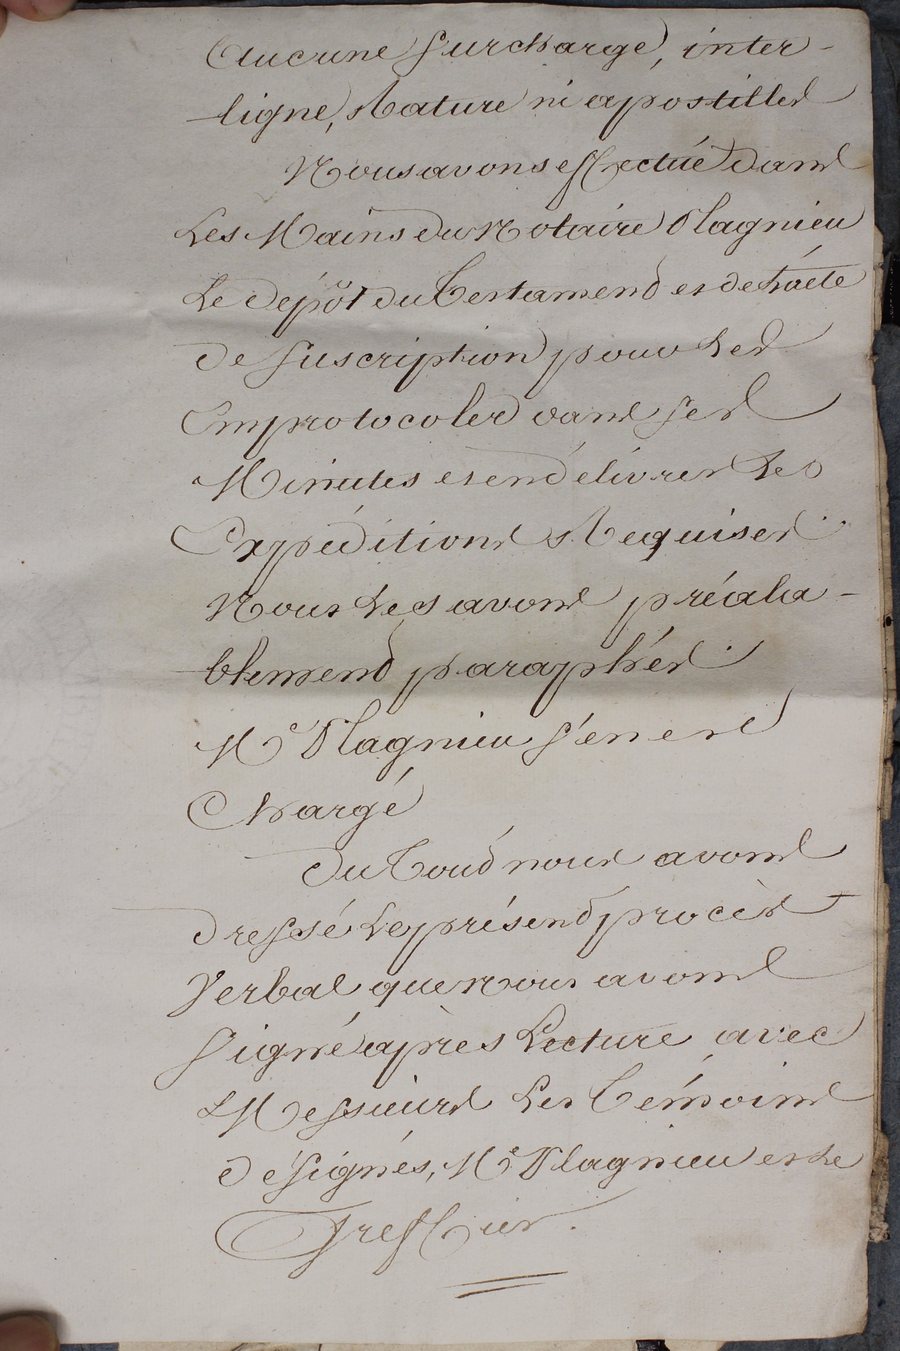 Aucune surcharge, inter-
ligne, Rature ni apostilles
Nous avons effectué dans
Les Mains du Notaire Plagnieu
Le dépôt du Testament et de l'acte
de suscription pour Les
Emprotocoler dans ses
Minutes et en délivrer Les
Expéditions Requises.
Nous Les avons préala-
blement paraphés.
Me Plagnieu s'en est
Chargé
Du Tout nous avons
dressé Le présent procès
Verbal que nous avons
Signé après Lecture avec
Messieurs Les Témoins
désignés, Me Plagnieu et Le
Greffier.